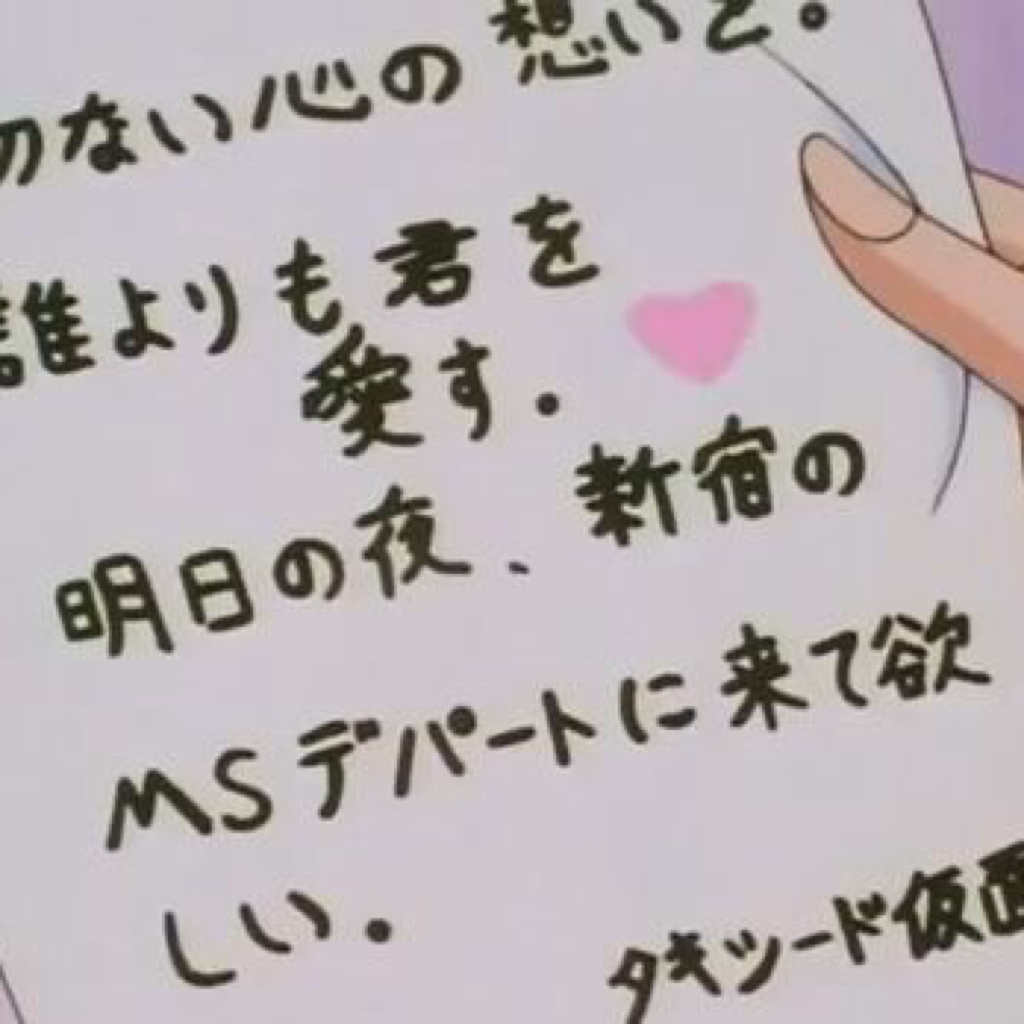 切ない心の想いを。
誰よりも君を
愛す.
明日の夜、新宿の
MSデパートに来て欲
しい.
タキシード仮面